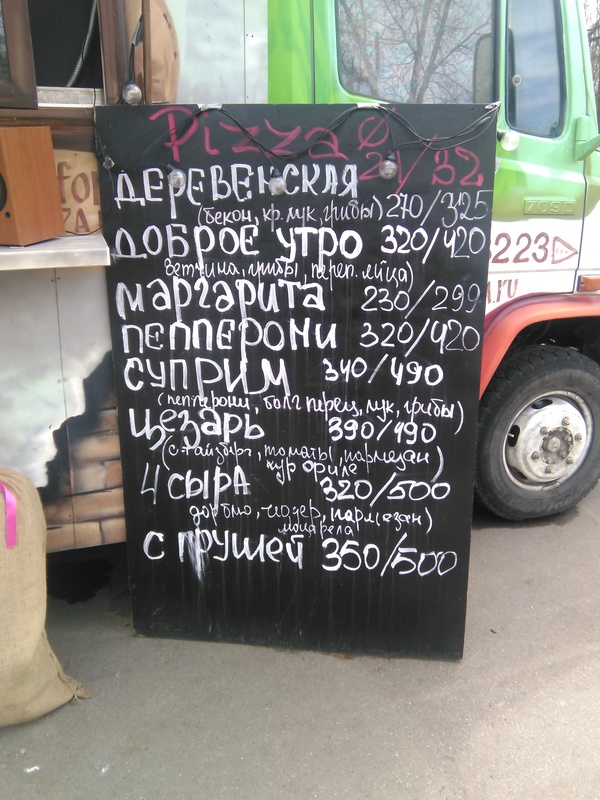 Pizza Ø
21/32
ДЕРЕВЕНСКАЯ
(бекон, кр. лук, грибы) 270/325
ДОБРОЕ УТРО 320/420
ветчина, грибы, переп. яйца)
МАРГАРИТА 230/299
ПЕППЕРОНИ 320/420
СУПРИМ 340/490
(пепперони, болг перец, лук, грибы)
ЦЕЗАРЬ 390/490
(с-т айзберг, томаты, пармезан)
кур филе
4 СЫРА 320/500
дорблю, чедер, пармезан)
моцарела
С ГРУШЕЙ 350/500
709D
223
.RU